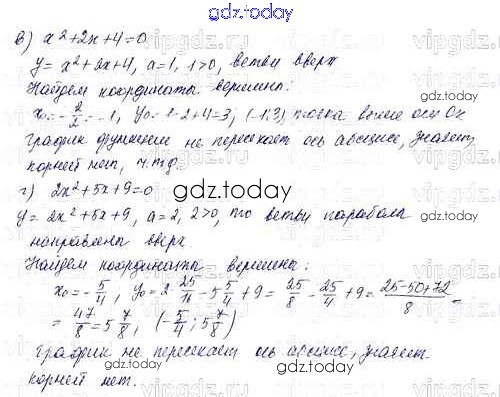 gdz.today
в) x²+2x+4=0
y = x²+2x+4, a=1, 1>0, ветви вверх
Найдем координаты вершины:
x₀ = -2/2 = -1, y₀ = 1-2+4=3; (-1;3) точка выше оси Ox
График функции не пересекает ось абсцисс, значит,
корней нет, ч.т.д.
г) 2x²+5x+9=0
gdz.today
y = 2x²+5x+9, a=2, 2>0, то ветви параболы
направлены вверх.
Найдем координаты вершины:
x₀ = -5/4; y₀ = 2·25/16 - 5·5/4 + 9 = 25/8 - 25/4 + 9 = (25-50+72)/8 =
= 47/8 = 5 7/8; (-5/4; 5 7/8)
График не пересекает ось абсцисс, значит
корней нет.
gdz.today
vipgdz